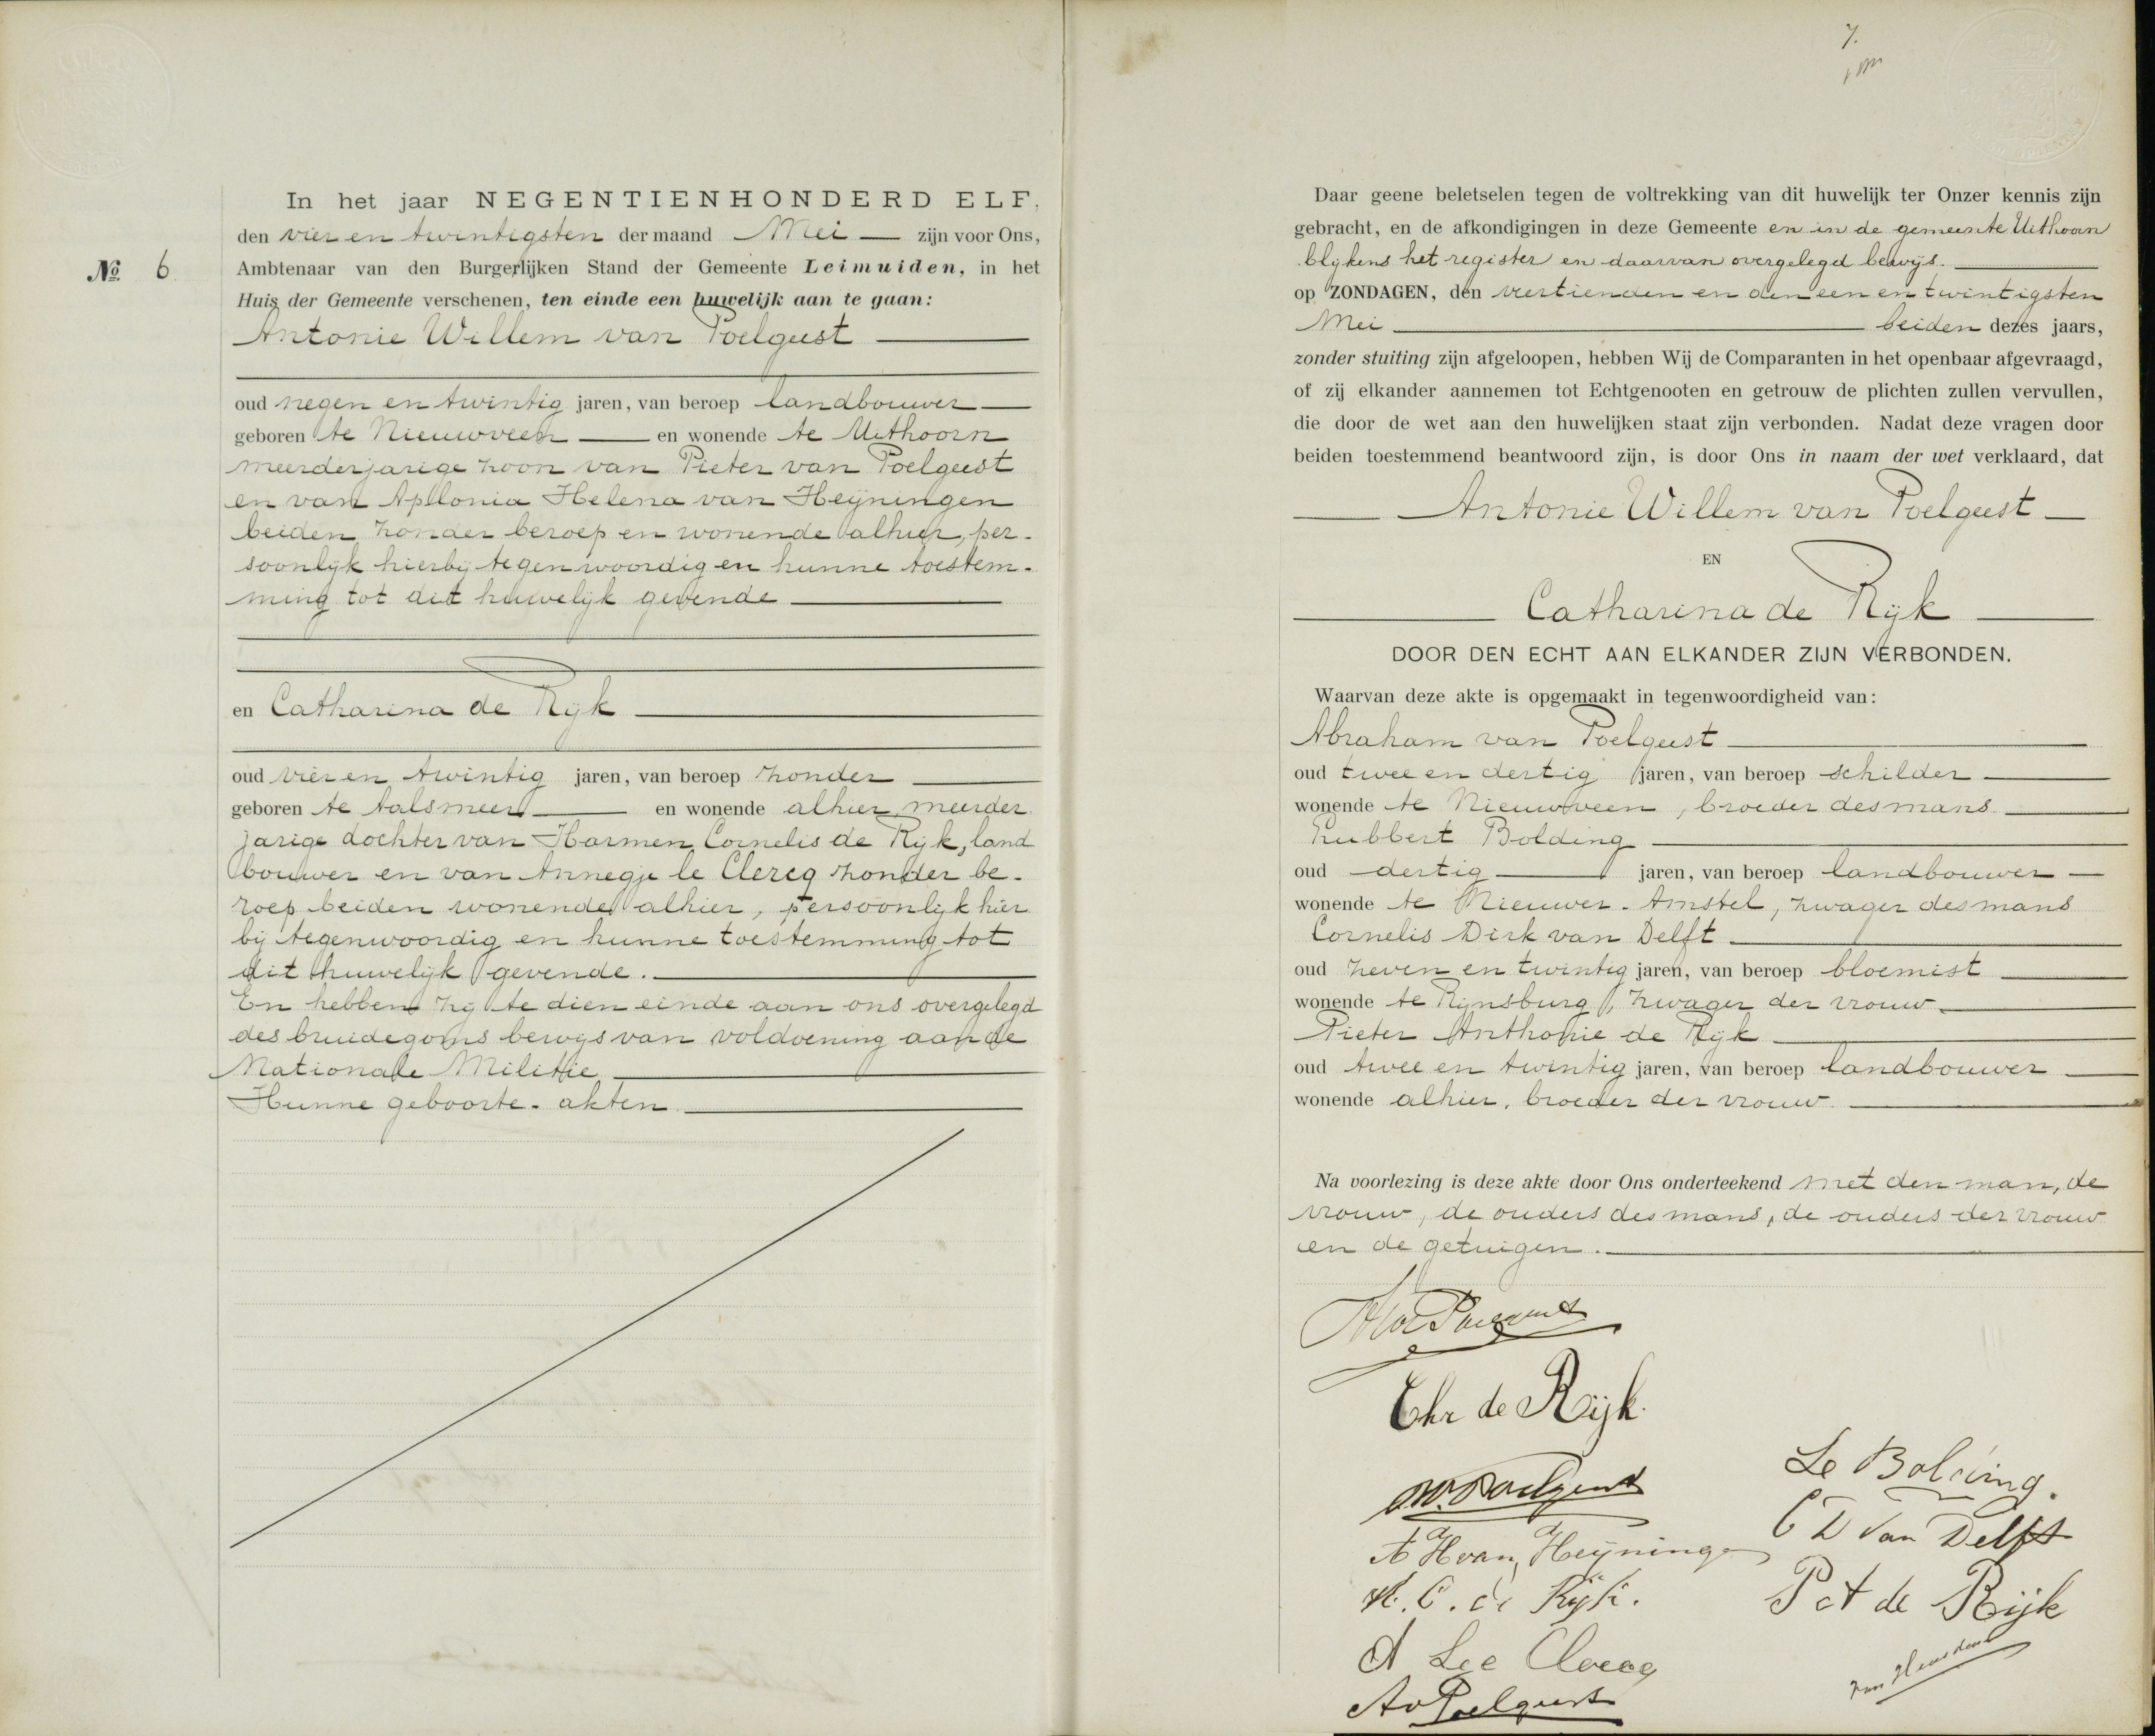 In het jaar NEGENTIENHONDERD ELF,
den vier en twintigsten der maand Mei zijn voor Ons,
Nº. 6 Ambtenaar van den Burgerlijken Stand der Gemeente Leimuiden, in het
Huis der Gemeente verschenen, ten einde een huwelijk aan te gaan:
Antonie Willem van Poelgeest
oud negen en twintig jaren, van beroep landbouwer
geboren te Nieuwveen en wonende te Uithoorn
meerderjarige zoon van Pieter van Poelgeest
en van Apllonia Helena van Heijningen
beiden zonder beroep en wonende alhier, per-
soonlijk hierbij tegenwoordig en hunne toestem-
ming tot dit huwelijk gevende
en Catharina de Rijk
oud vier en twintig jaren, van beroep zonder
geboren te Aalsmeer en wonende alhier, meerder
jarige dochter van Harmen Cornelis de Rijk, land
bouwer en van Annegje le Clercq zonder be-
roep beiden wonende alhier, persoonlijk hier
bij tegenwoordig en hunne toestemming tot
dit huwelijk gevende.
En hebben zij te dien einde aan ons overgelegd
des bruidegoms bewijs van voldoening aan de
Nationale Militie
Hunne geboorte-akten
7.
Daar geene beletselen tegen de voltrekking van dit huwelijk ter Onzer kennis zijn
gebracht, en de afkondigingen in deze Gemeente en in de gemeente Uithoorn
blijkens het register en daarvan overgelegd bewijs.
op ZONDAGEN, den veertienden en den een en twintigsten
Mei beiden dezes jaars,
zonder stuiting zijn afgeloopen, hebben Wij de Comparanten in het openbaar afgevraagd,
of zij elkander aannemen tot Echtgenooten en getrouw de plichten zullen vervullen,
die door de wet aan den huwelijken staat zijn verbonden. Nadat deze vragen door
beiden toestemmend beantwoord zijn, is door Ons in naam der wet verklaard, dat
Antonie Willem van Poelgeest
EN
Catharina de Rijk
DOOR DEN ECHT AAN ELKANDER ZIJN VERBONDEN.
Waarvan deze akte is opgemaakt in tegenwoordigheid van:
Abraham van Poelgeest
oud twee en dertig jaren, van beroep schilder
wonende te Nieuwveen, broeder des mans
Lubbert Bolding
oud dertig jaren, van beroep landbouwer
wonende te Nieuwer-Amstel, zwager des mans
Cornelis Dirk van Delft
oud zeven en twintig jaren, van beroep bloemist
wonende te Rijnsburg, zwager der vrouw
Pieter Anthonie de Rijk
oud twee en twintig jaren, van beroep landbouwer
wonende alhier, broeder der vrouw.
Na voorlezing is deze akte door Ons onderteekend met den man, de
vrouw, de ouders des mans, de ouders der vrouw
en de getuigen.
Chr de Rijk.
Le Bolding.
C D van Delft
A H van Heijninge
H. C. de Rijk.
P A de Rijk
A Le Clercq
Av Poelgeest